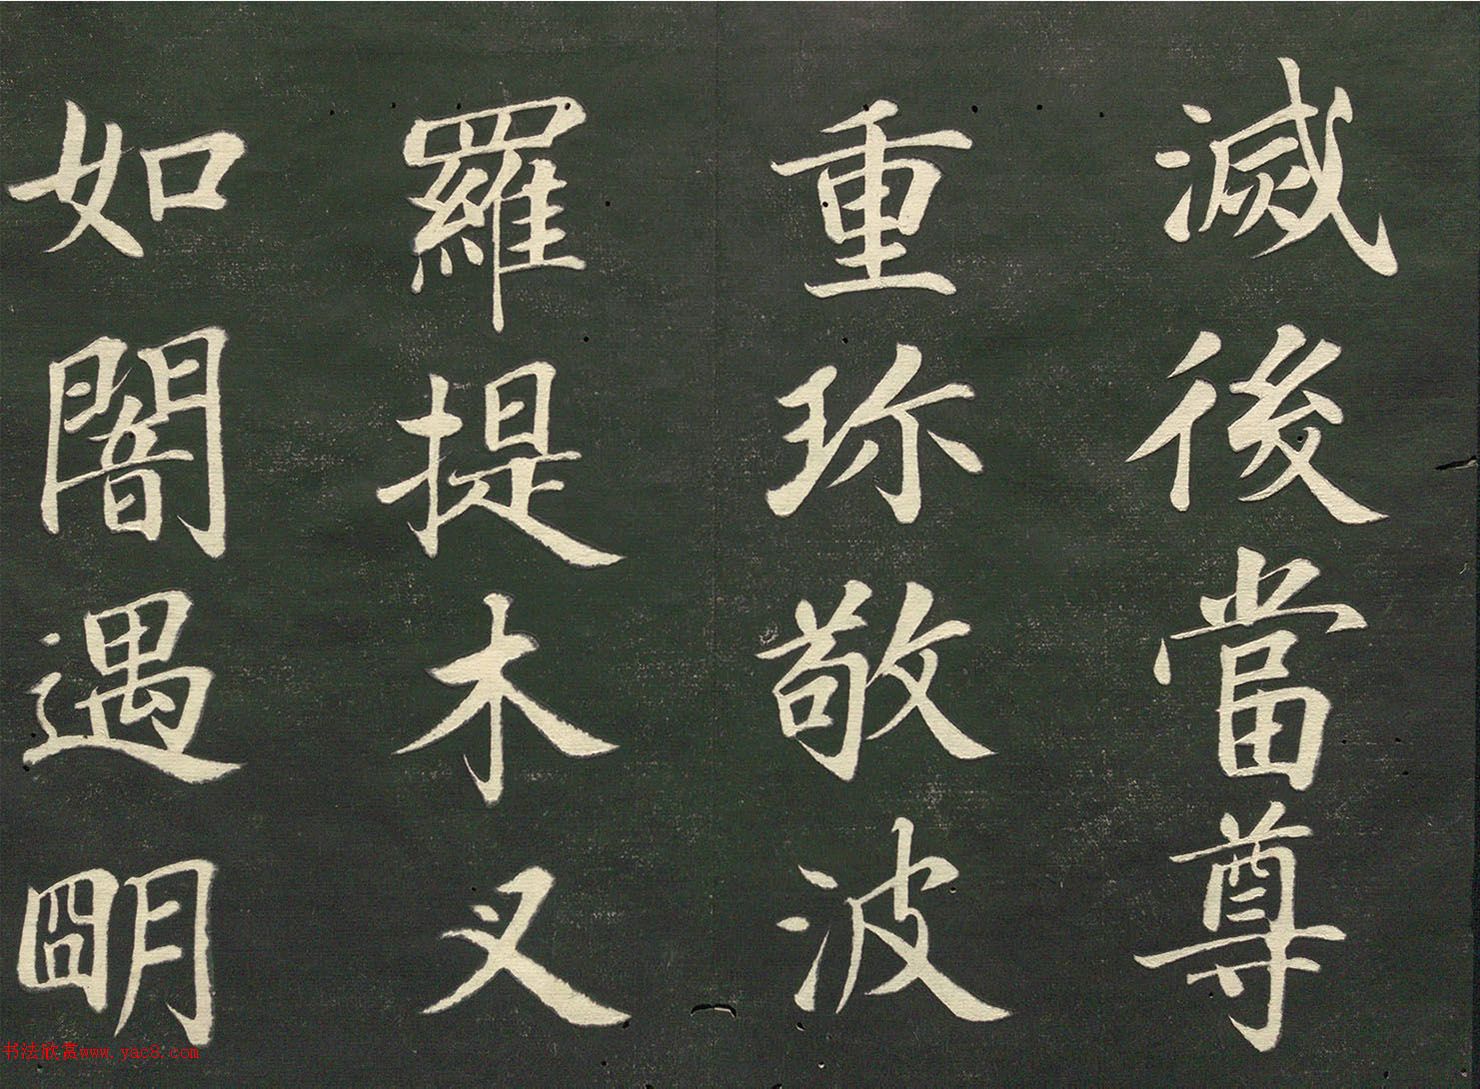 滅後當尊
重珎敬波
羅提木叉
如闇遇朙
书法欣赏www.yac8.com